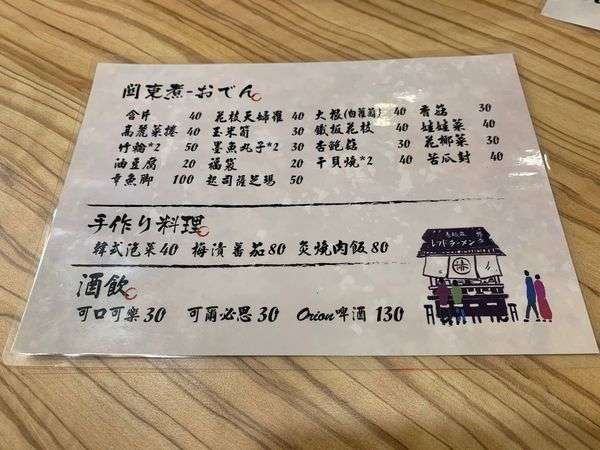 関東煮-おでん
合片 40 花枝天婦羅 40 大根(白蘿蔔) 40 香菇 30
高麗菜捲 40 玉米筍 30 鐵板花枝 40 娃娃菜 40
竹輪*2 50 墨魚丸子*2 30 杏鮑菇 30 花椰菜 30
油豆腐 20 福袋 20 干貝燒*2 40 苦瓜封 40
章魚脚 100 起司薩芝瑪 50
手作り料理
韓式泡菜 40 梅漬番茄 80 炙燒肉飯 80
酒飲
可口可樂 30 可爾必思 30 Orion啤酒 130
レッドラーメン